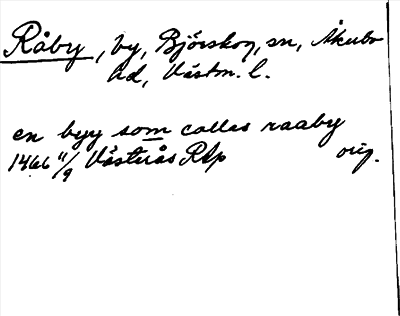 Råby, by, Björskog, sn, Åkerbo
hd, Västm. l.
en byy som callas raaby
1466 11/9 Västerås Rtp orig.